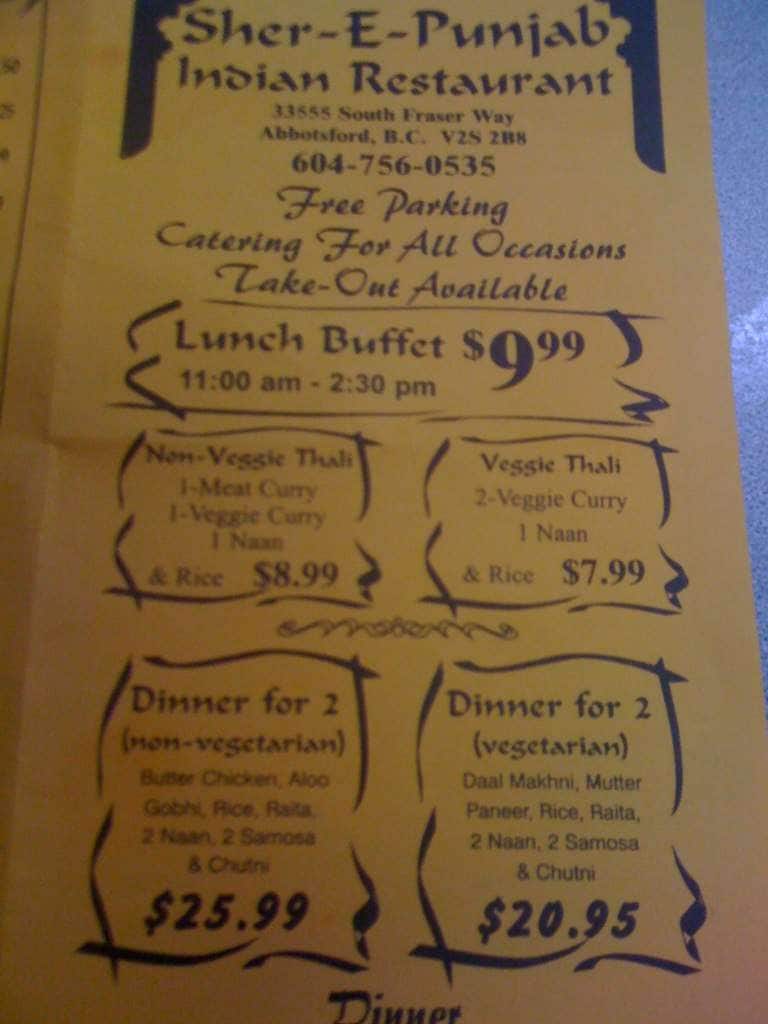 50
25
Sher-E-Punjab
Indian Restaurant
33555 South Fraser Way
Abbotsford, B.C. V2S 2B8
604-756-0535
Free Parking
Catering For All Occasions
Take-Out Available
Lunch Buffet $9.99
11:00 am - 2:30 pm
Non-Veggie Thali
1-Meat Curry
1-Veggie Curry
1 Naan
& Rice $8.99
Veggie Thali
2-Veggie Curry
1 Naan
& Rice $7.99
Dinner for 2
(non-vegetarian)
Butter Chicken, Aloo
Gobhi, Rice, Raita,
2 Naan, 2 Samosa
& Chutni
$25.99
Dinner for 2
(vegetarian)
Daal Makhni, Mutter
Paneer, Rice, Raita,
2 Naan, 2 Samosa
& Chutni
$20.95
Dinner